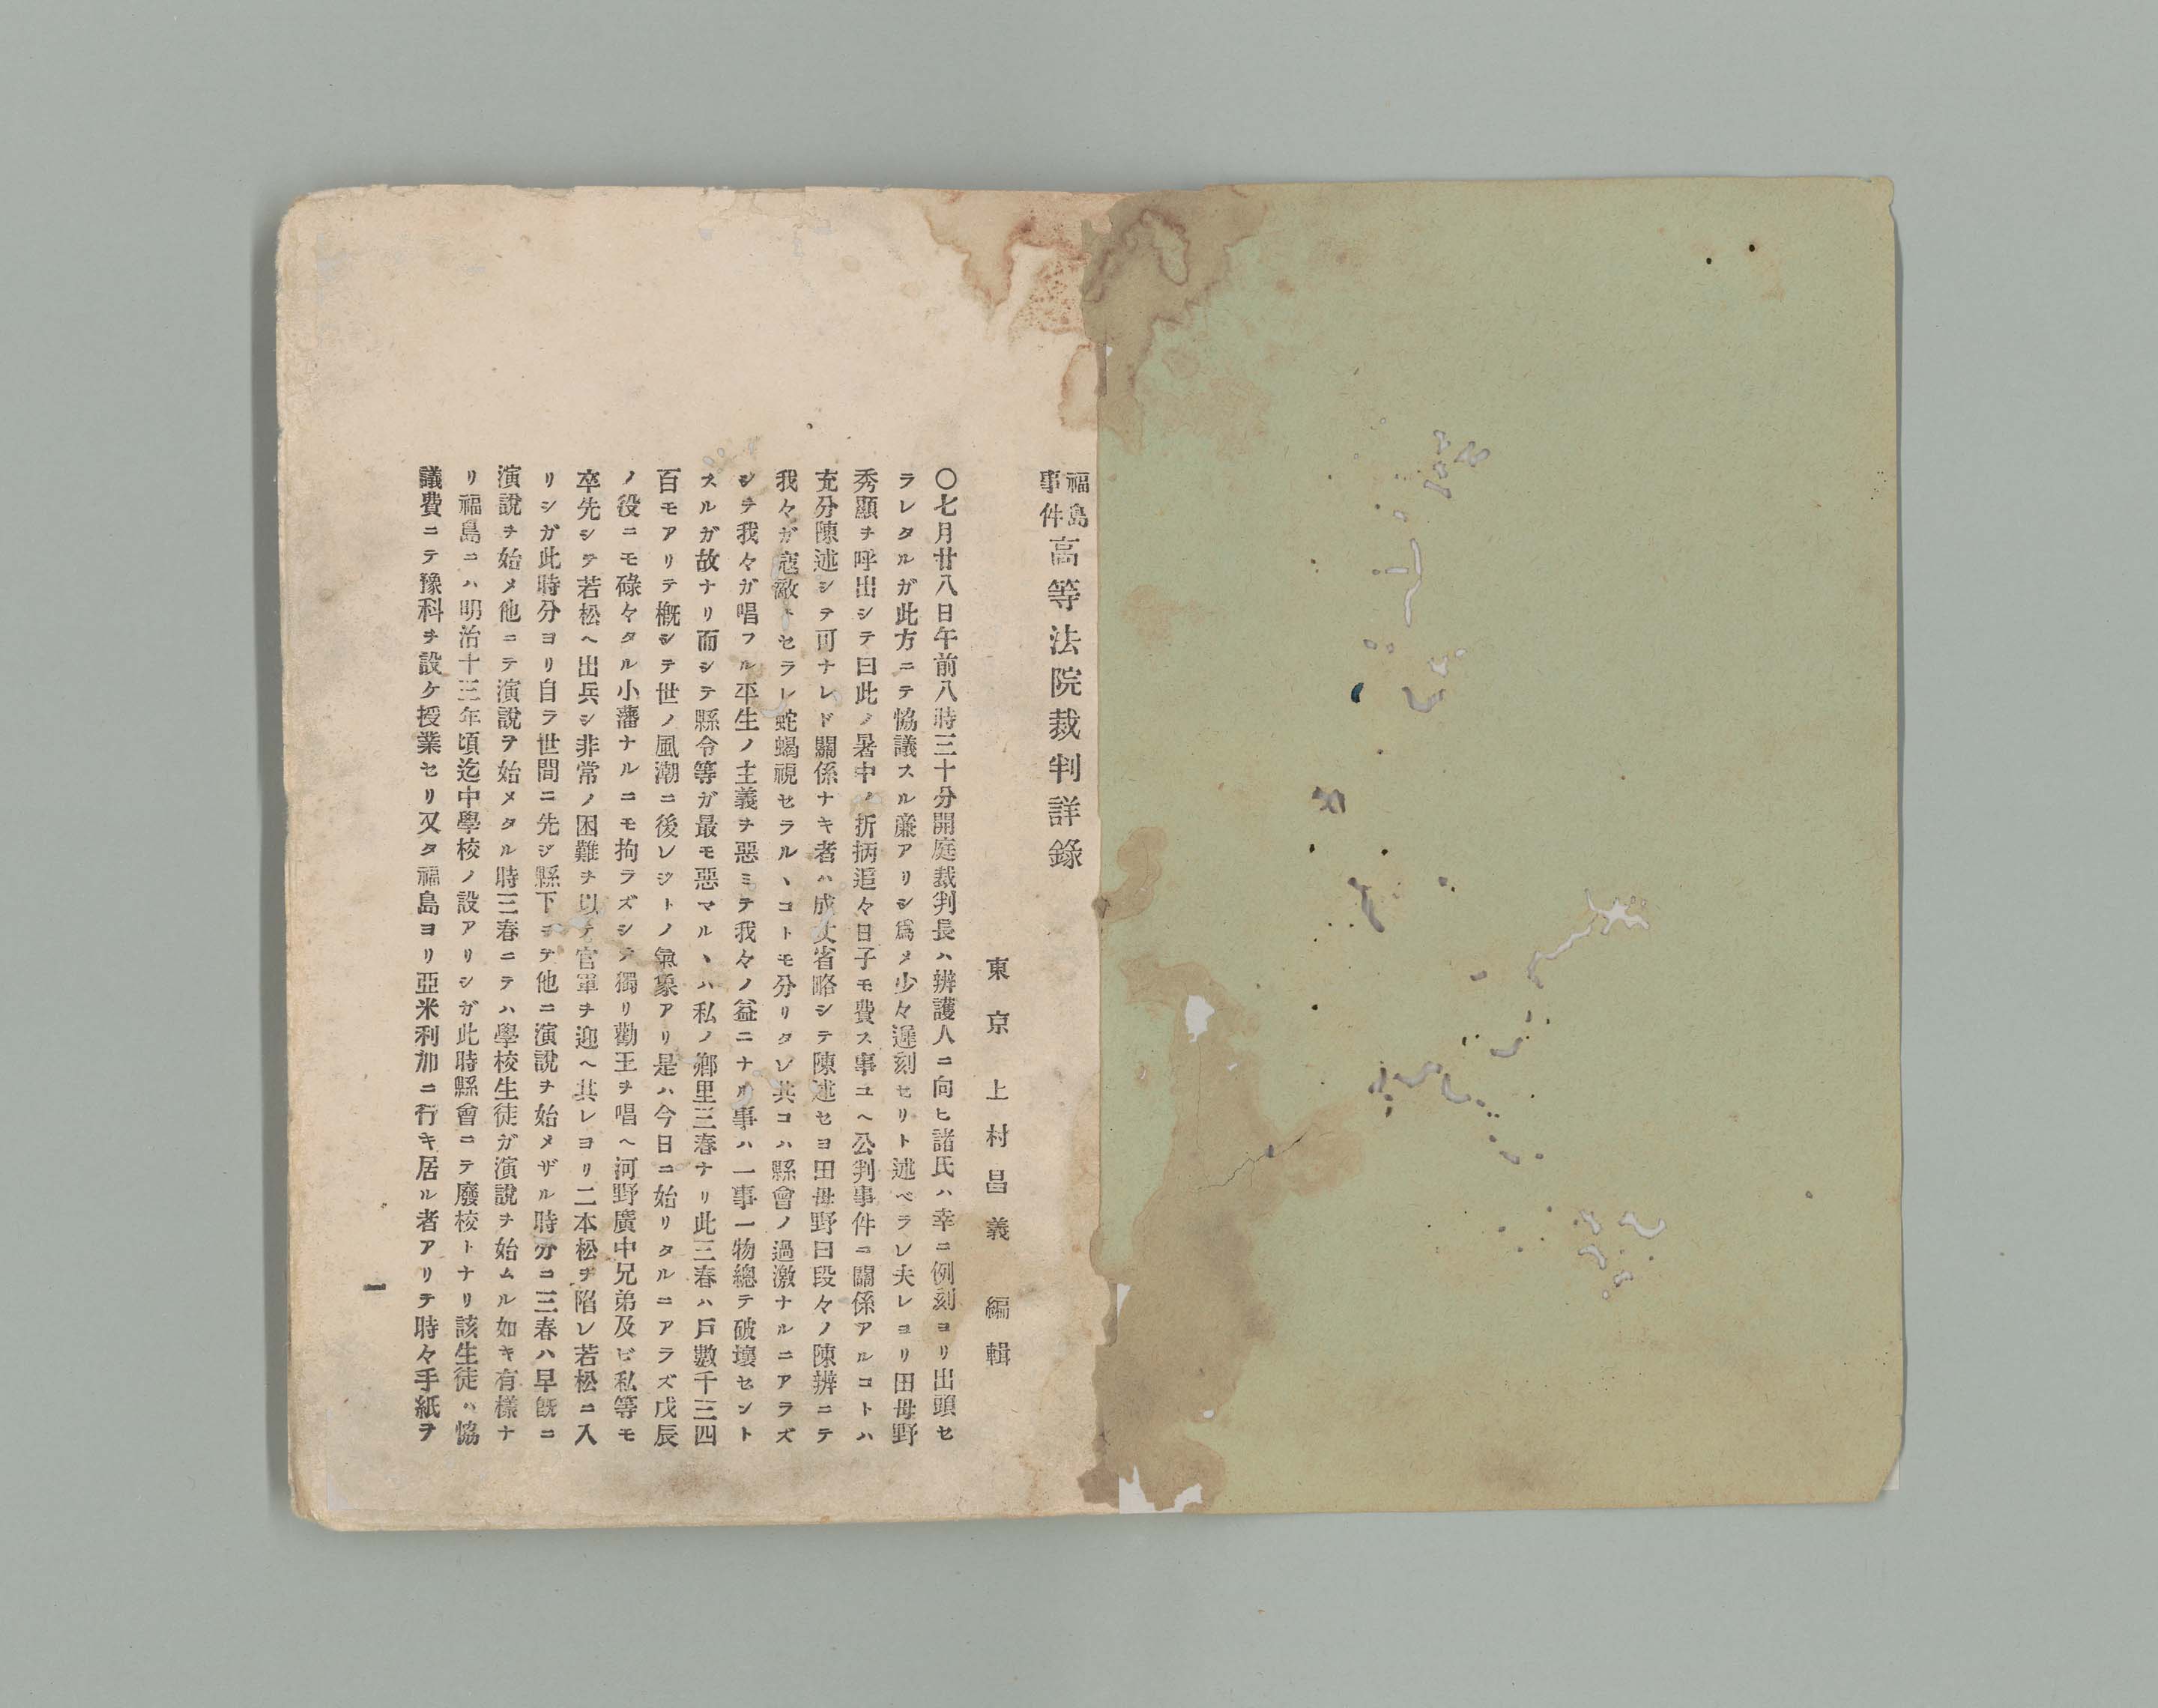 福島事件高等法院裁判詳錄
東京 上村昌義 編輯
〇七月廿八日午前八時三十分開庭裁判長ハ辨護人ニ向ヒ諸氏ハ幸ニ例刻ヨリ出頭セ
ラレタルガ此方ニテ恊議スル廉アリシ爲メ少々遲刻セリト述ベラレ夫レヨリ田母野
秀顯ヲ呼出シテ曰此ノ暑中ノ折柄追々日子モ費ス事ユヘ公判事件ニ關係アルコトハ
充分陳述シテ可ナレド關係ナキ者ハ成丈省略シテ陳述セヨ田母野曰段々ノ陳辨ニテ
我々ガ寇敵トセラレ蛇蝎視セラルヽコトモ分リタレ共コハ縣會ノ過激ナルニアラズ
シテ我々ガ唱フル平生ノ主義ヲ惡ミテ我々ノ益ニナル事ハ一事一物總テ破壞セント
スルガ故ナリ而シテ縣令等ガ最モ惡マルヽハ私ノ鄕里三春ナリ此三春ハ戸數千三四
百モアリテ槪シテ世ノ風潮ニ後レジトノ氣象アリ是ハ今日ニ始リタルニアラズ戊辰
ノ役ニモ碌々タル小藩ナルニモ拘ラズシテ獨リ勤王ヲ唱ヘ河野廣中兄弟及ビ私等モ
卒先シテ若松ヘ出兵シ非常ノ困難ヲ以テ官軍ヲ迎ヘ其レヨリ二本松ヲ陷レ若松ニ入
リシガ此時分ヨリ自ラ世間ニ先ジ縣下ニテ他ニ演說ヲ始メザル時分ニ三春ハ早旣ニ
演說ヲ始メ他ニテ演說ヲ始メタル時三春ニテハ學校生徒ガ演說ヲ始ムル如キ有樣ナ
リ福島ニハ明治十三年頃迄中學校ノ設アリシガ此時縣會ニテ廢校トナリ該生徒ハ恊
議費ニテ豫科ヲ設ケ授業セリ又タ福島ヨリ亞米利加ニ行キ居ル者アリテ時々手紙ヲ
一